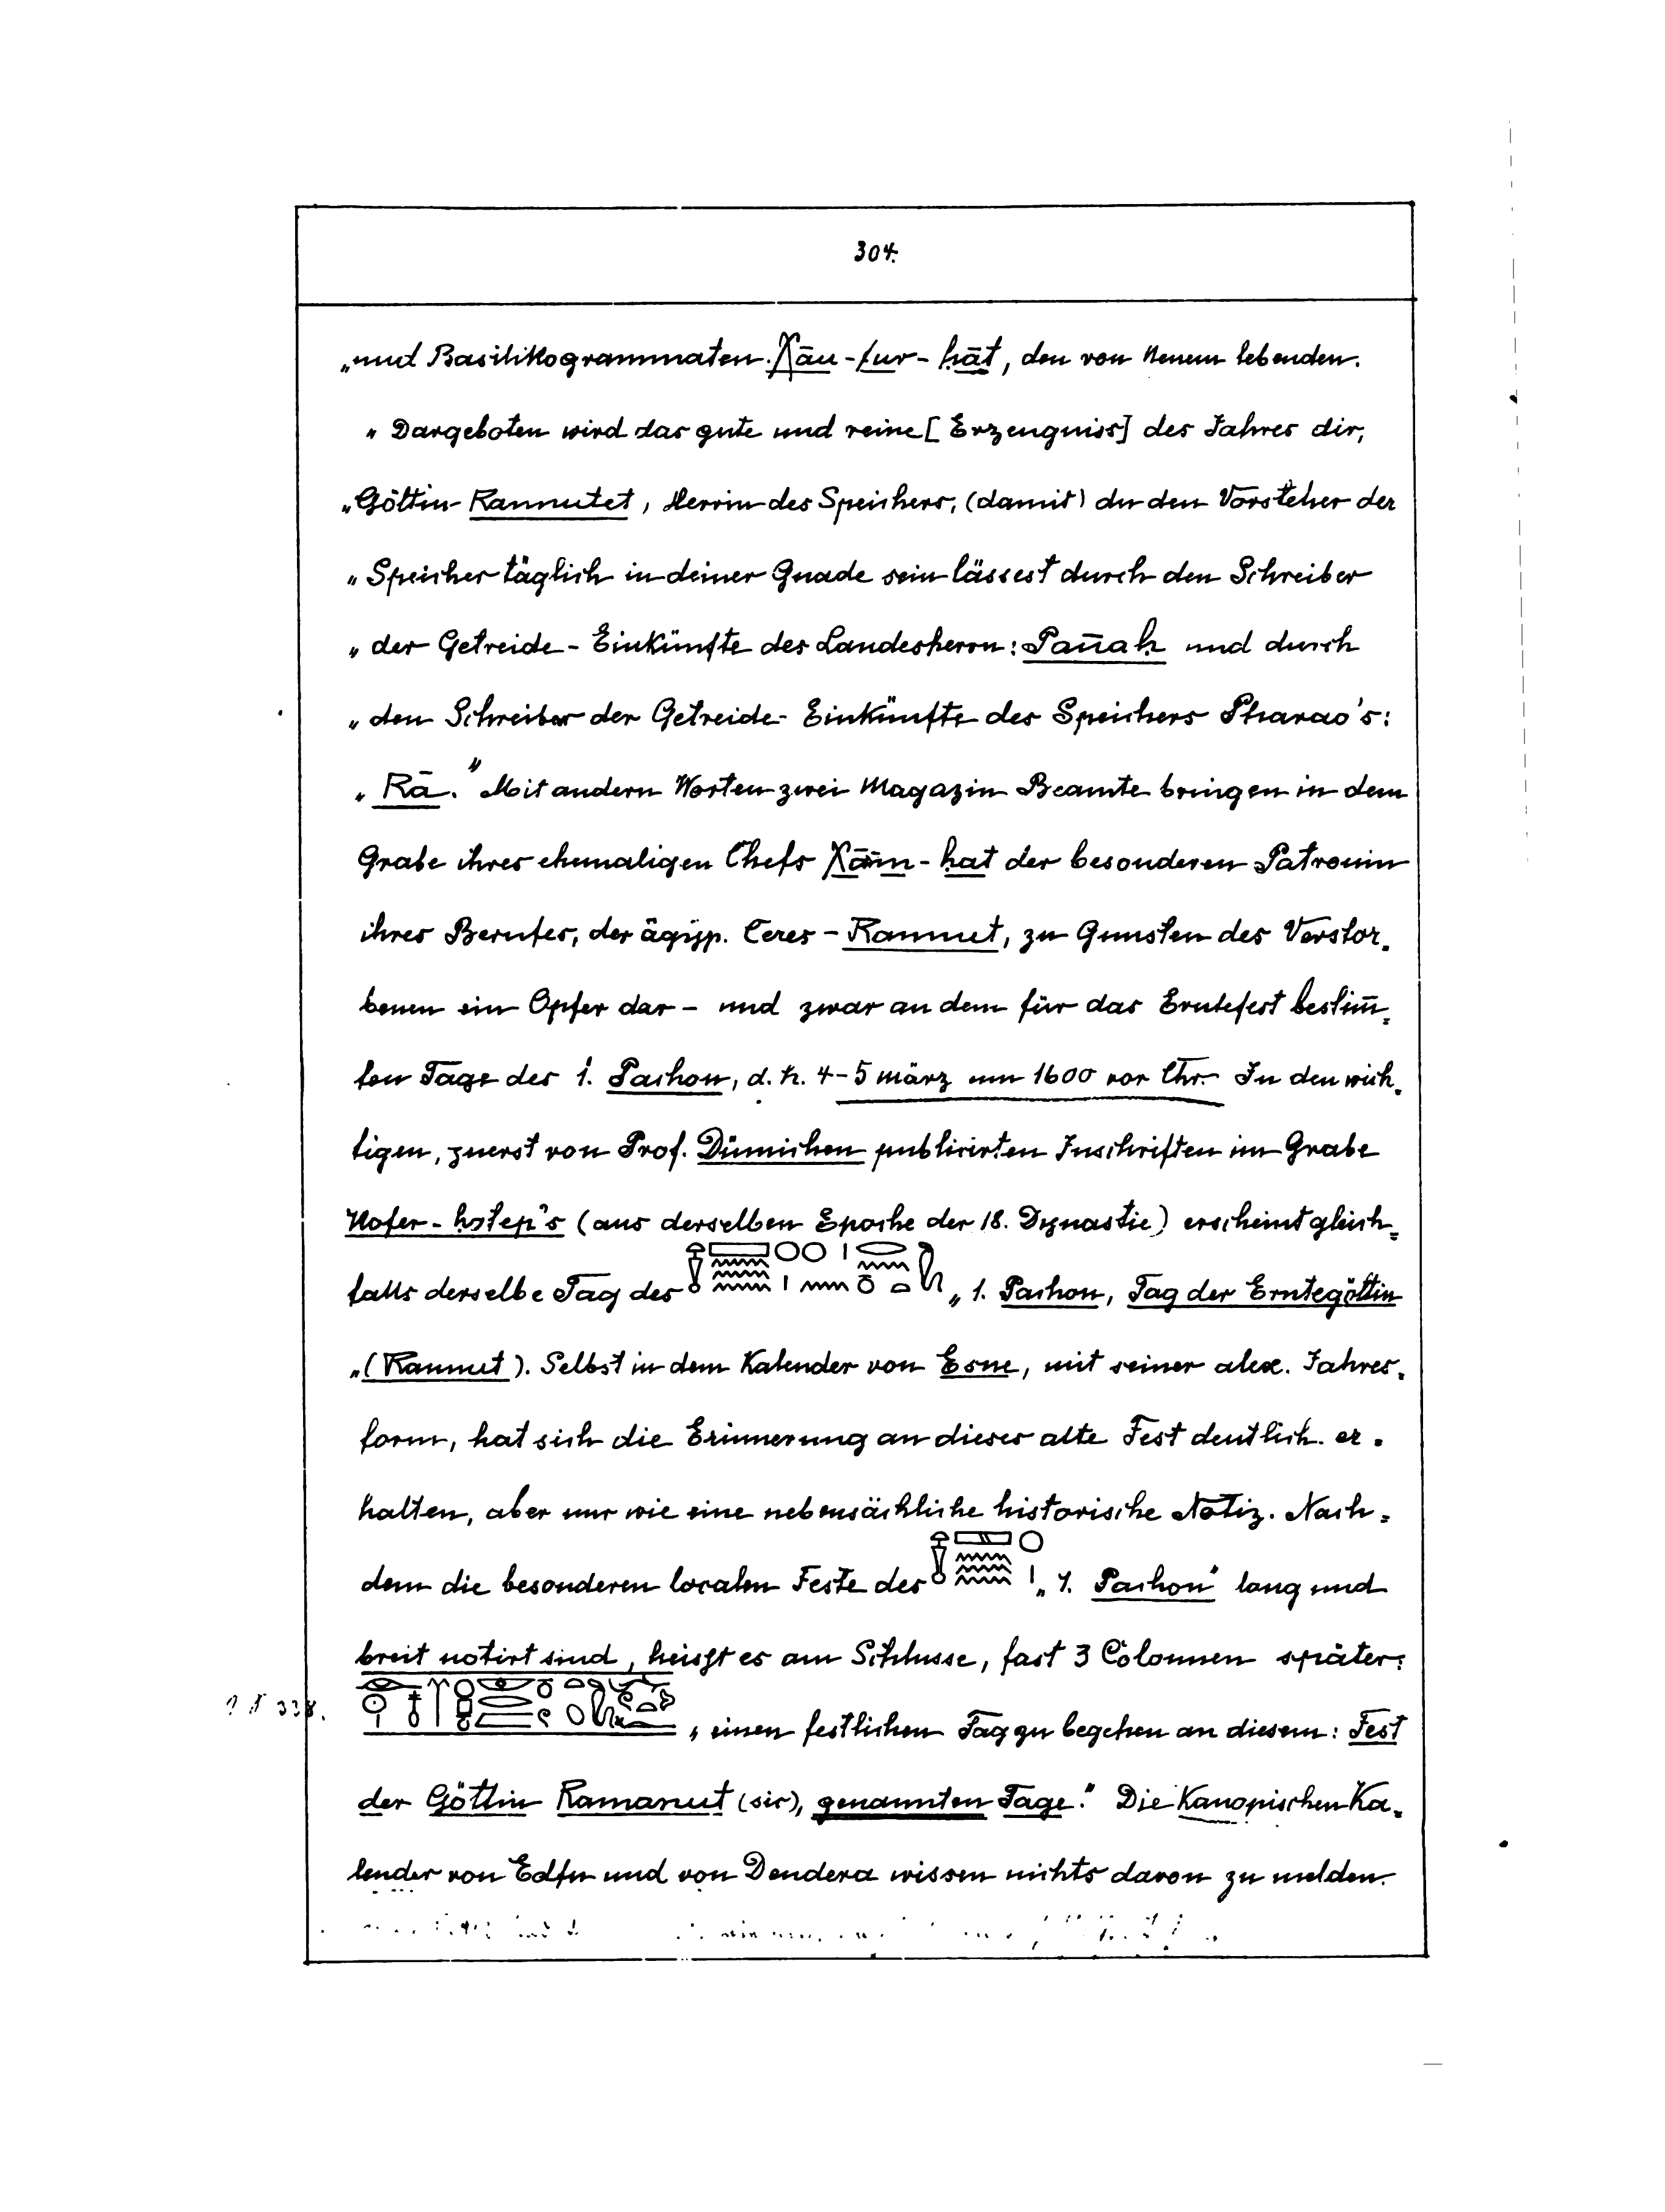 304.
„und Basilikogrammaten. Xāu-fur-hāt, den von Neuem lebenden.
„Dargeboten wird das gute und reine [Erzeugniss] des Jahres dir,
„Göttin Rannutet, Herrin des Speichers, (damit) du den Vorsteher der
„Speicher täglich in deiner Gnade sein lässest durch den Schreiber
„der Getreide-Einkünfte des Landesherrn: Pañah und durch
„den Schreiber der Getreide-Einkünfte des Speichers Pharao's:
„Rā." Mit andern Worten zwei Magazin Beamte bringen in dem
Grabe ihres ehemaligen Chefs -hat der besonderen Patronin
ihres Berufes, der ägyp. Ceres - Rannut, zu Gunsten des Verstor„
benen ein Opfer dar - und zwar an dem für das Erntefest bestim̄„
ten Tage des 1. Pachon, d. h. 4-5 März um 1600 vor Chr. In den wich„
tigen, zuerst von Prof. Dümichen publicirten Inschriften im Grabe
Nofer-hotep's (aus derselben Epoche der 18. Dynastie) erscheint gleich„
falls derselbe Tag des „1. Pachon, Tag der Erntegöttin
„(Rannut). Selbst in dem Kalender von Esne, mit seiner alex. Jahres„
form, hat sich die Erinnerung an dieses alte Fest deutlich er„
halten, aber nur wie eine nebensächliche historische Notiz. Nach„
dem die besonderen localen Feste des „1. Pachon" lang und
breit notirt sind, heisst es am Schlusse, fast 3 Colonnen später:
„einen festlichen Tag zu begehen an diesem: Fest
der Göttin Ramanut (sic), genannten Tage." Die Kanopischen Ka„
lender von Edfu und von Dendera wissen nichts davon zu melden.